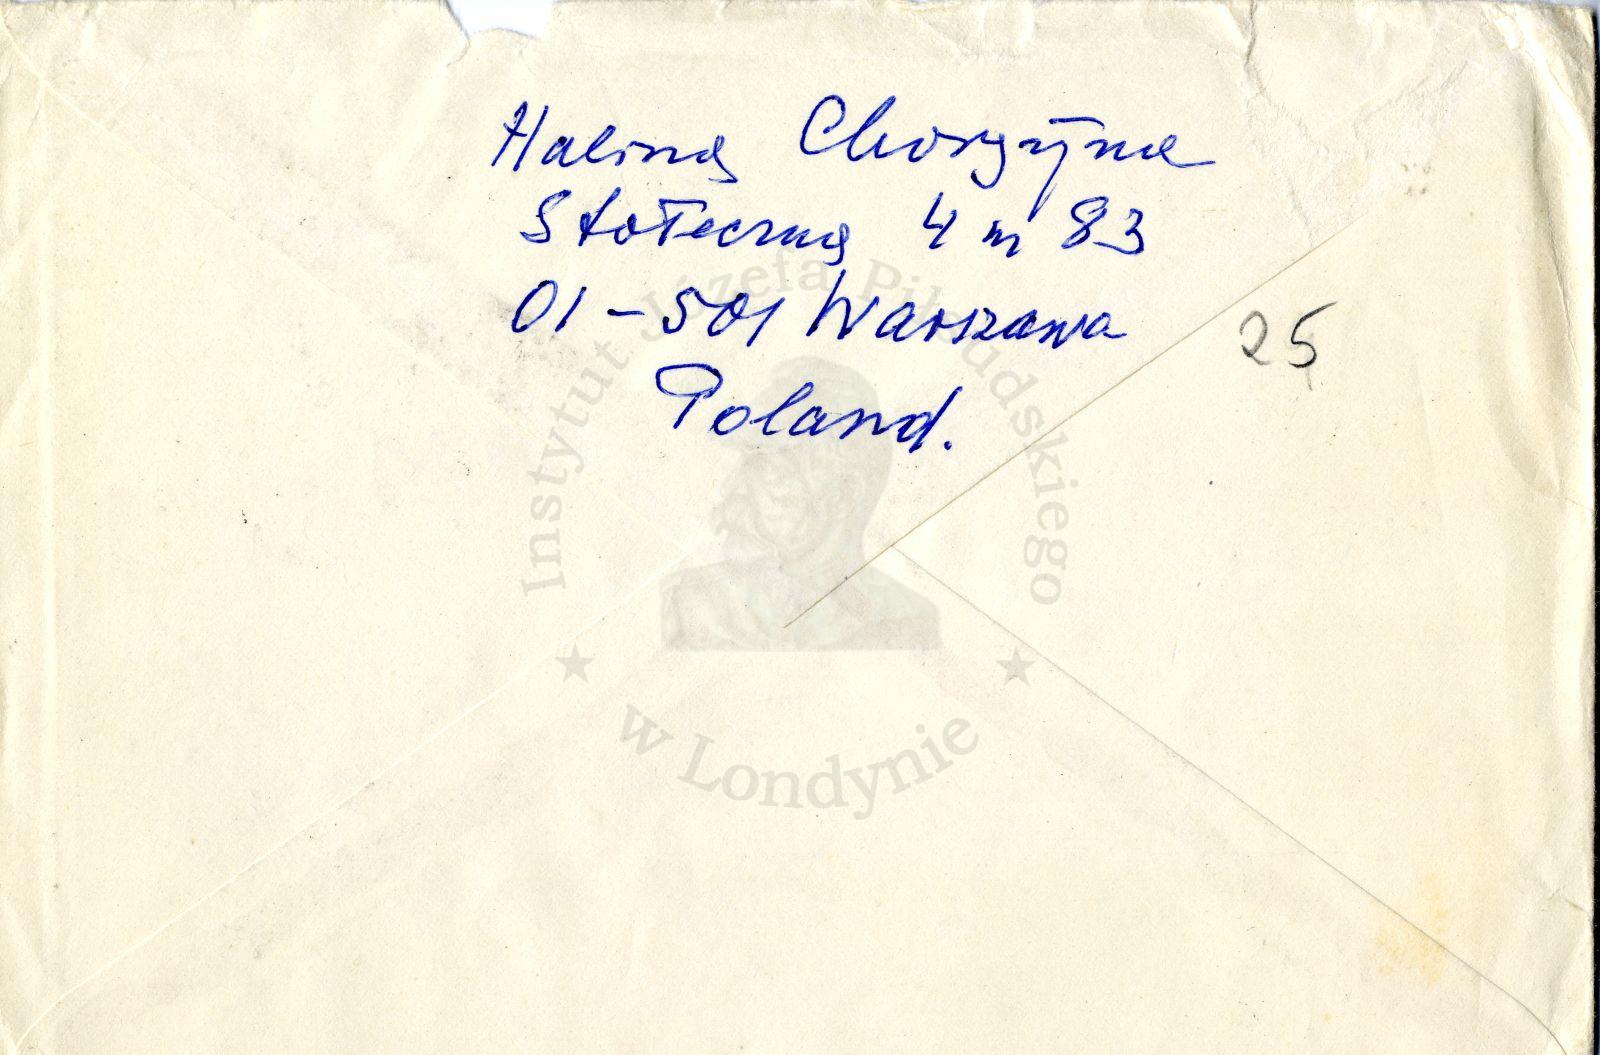 Halina Chorzyna
Stołeczna 4 m 83
01-501 Warszawa
Poland.
25
Instytut Józefa Piłsudskiego
★ ★
w Londynie